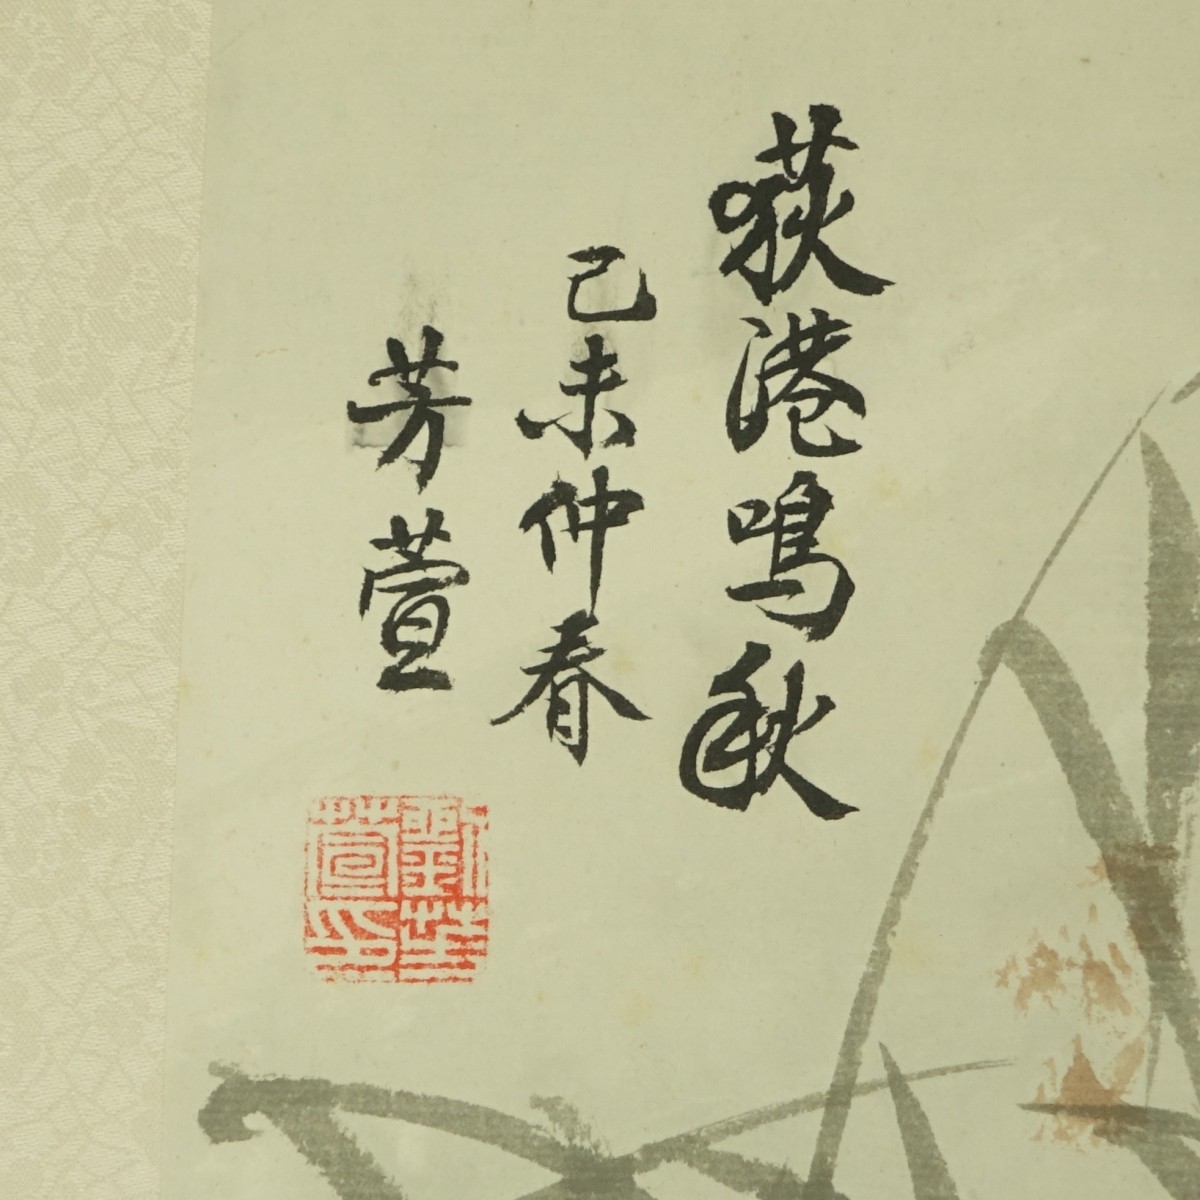 荻港鳴秋
己未仲春
芳萱